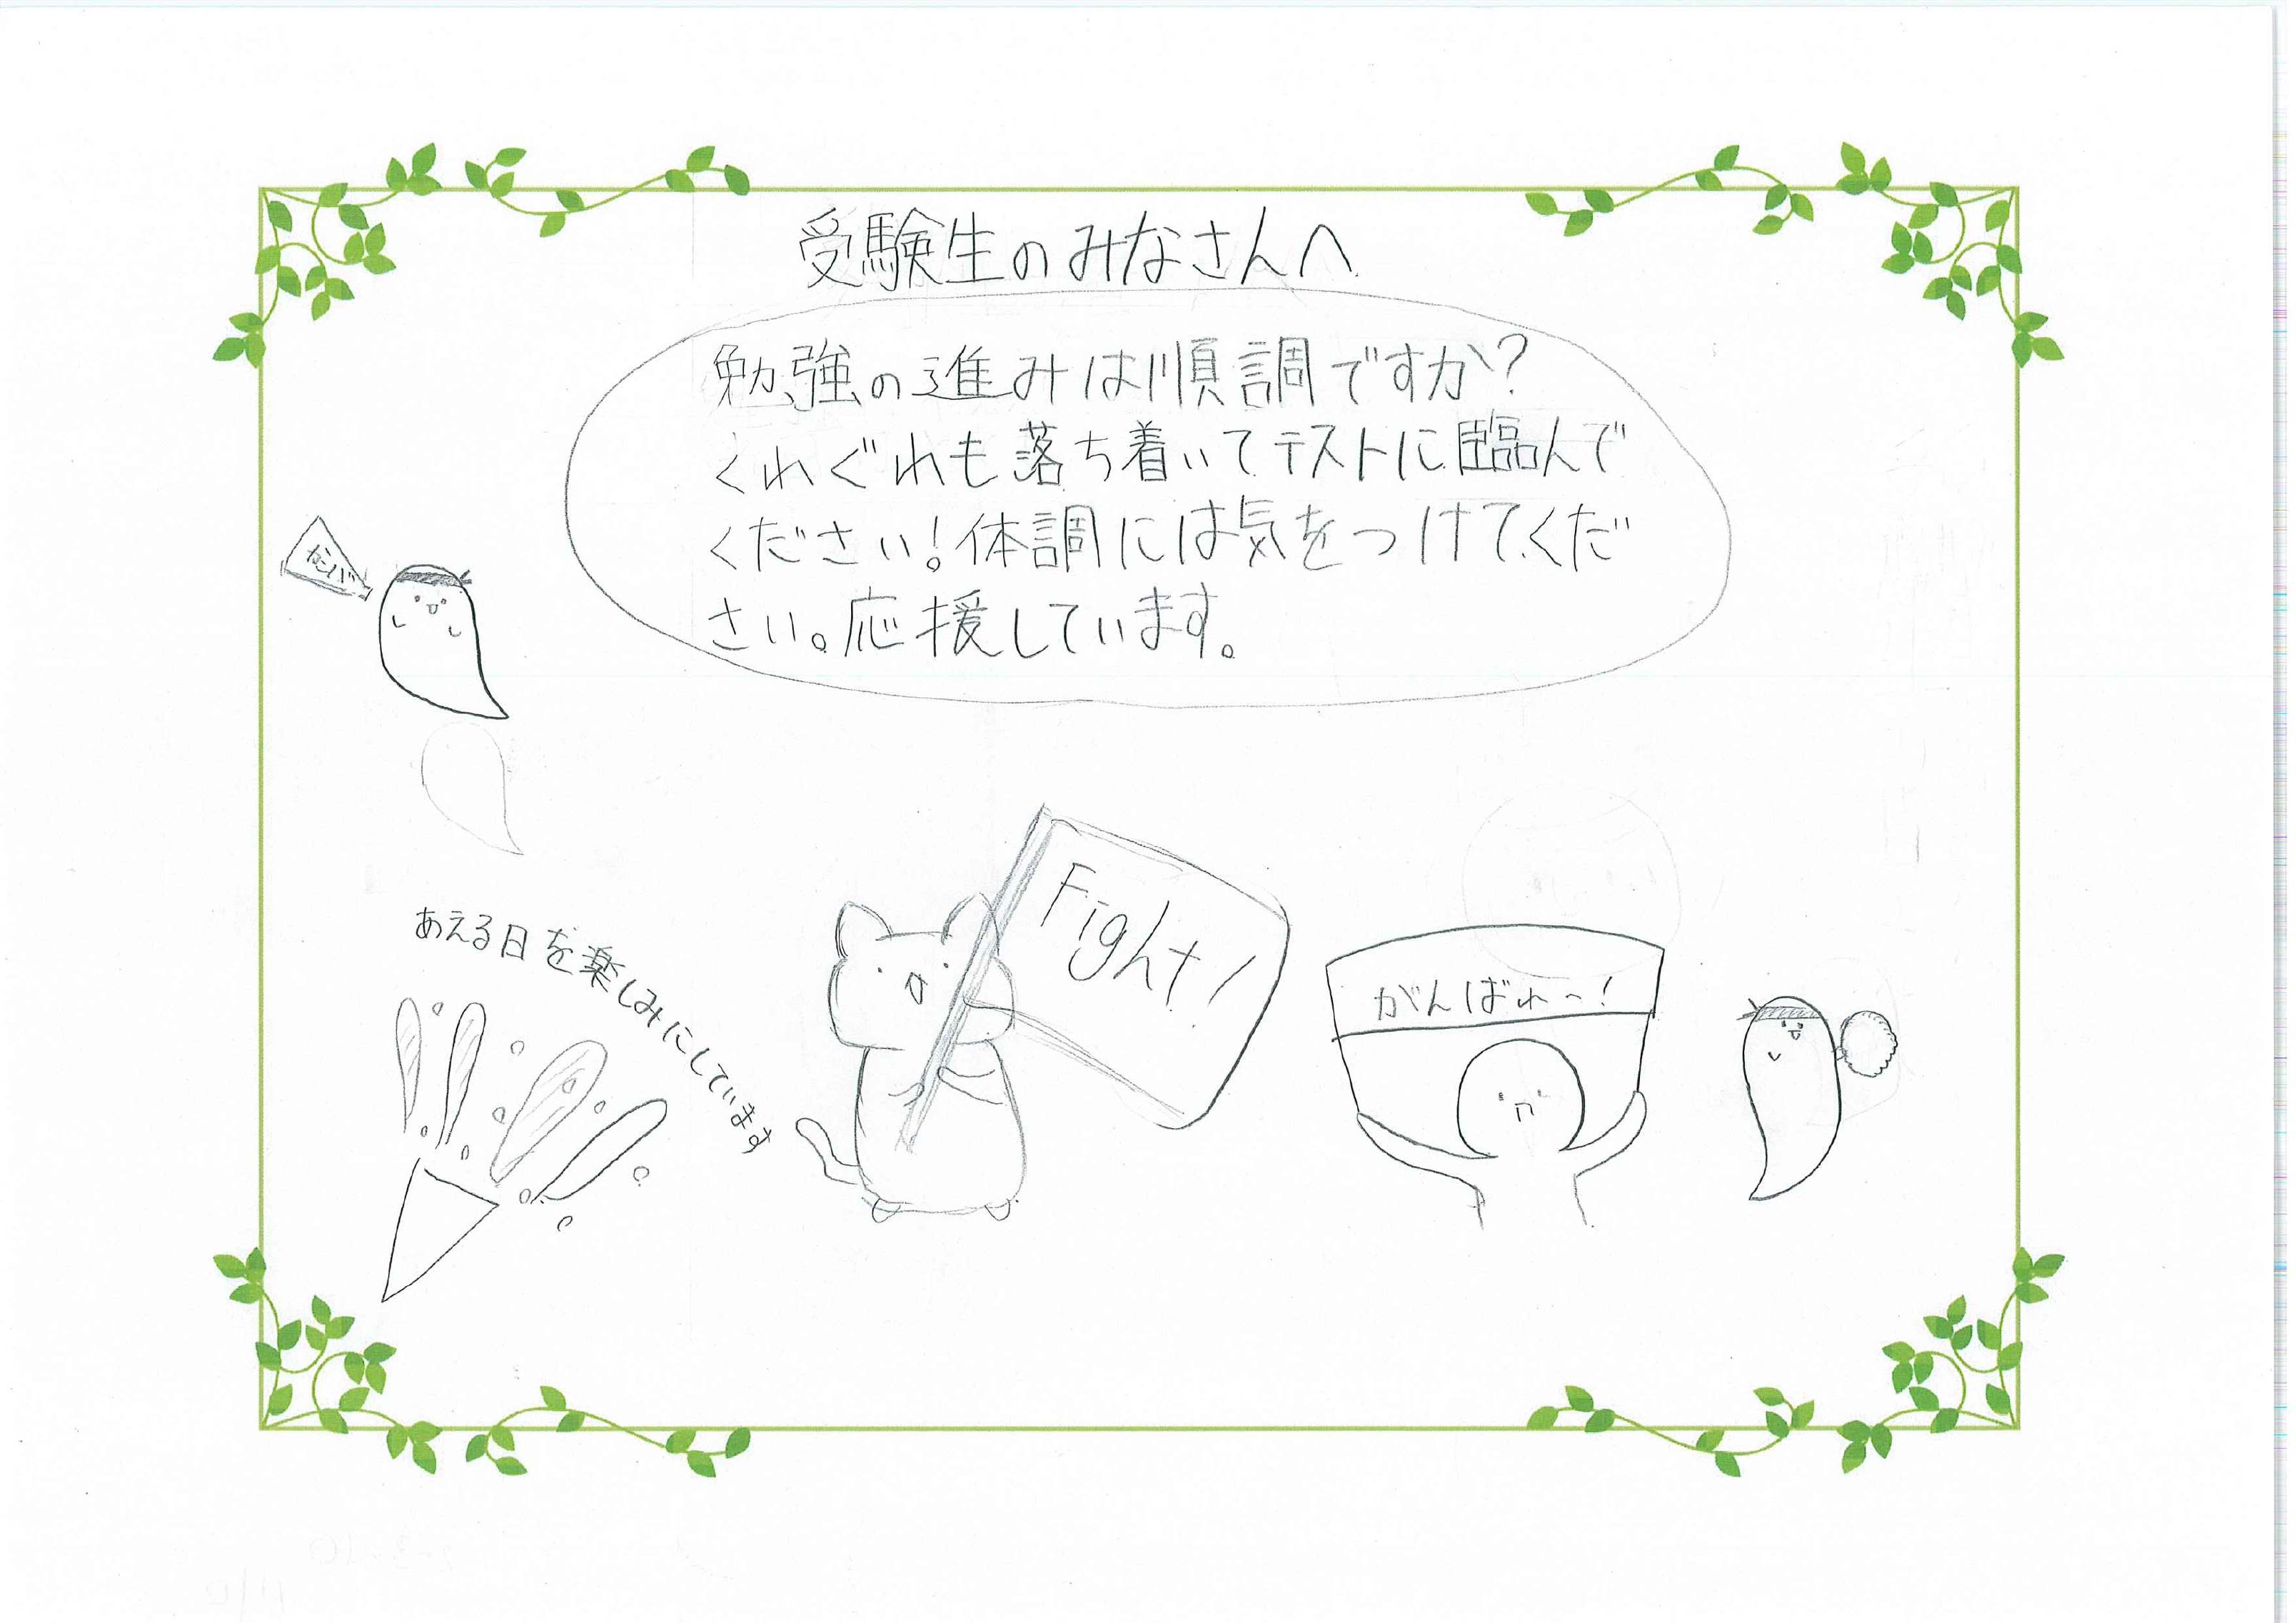 受験生のみなさんへ
勉強の進みは順調ですか?
くれぐれも落ち着いてテストに臨んで
ください!体調には気をつけてくだ
さい。応援しています。
がんば
あえる日を楽しみにしています
Fight!
がんばれ～!